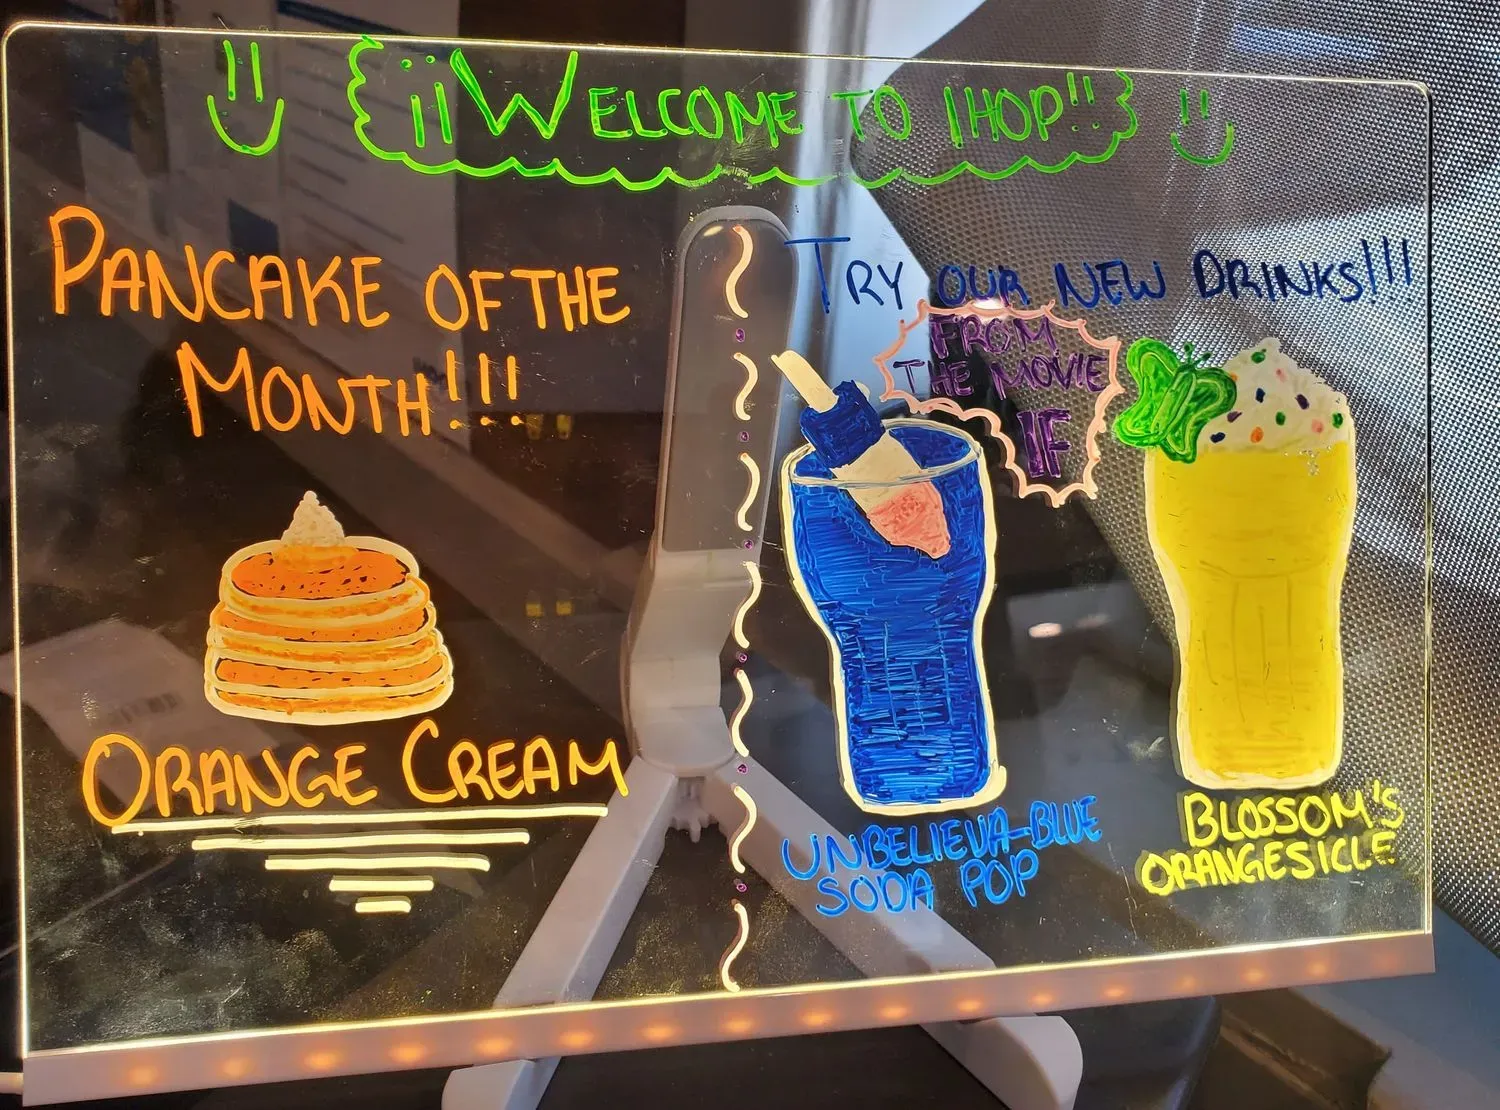 ¡¡WELCOME TO IHOP!!
PANCAKE OF THE
MONTH!!!
ORANGE CREAM
TRY OUR NEW DRINKS!!!
FROM
THE MOVIE
IF
UNBELIEVA-BLUE
SODA POP
BLOSSOM'S
ORANGESICLE